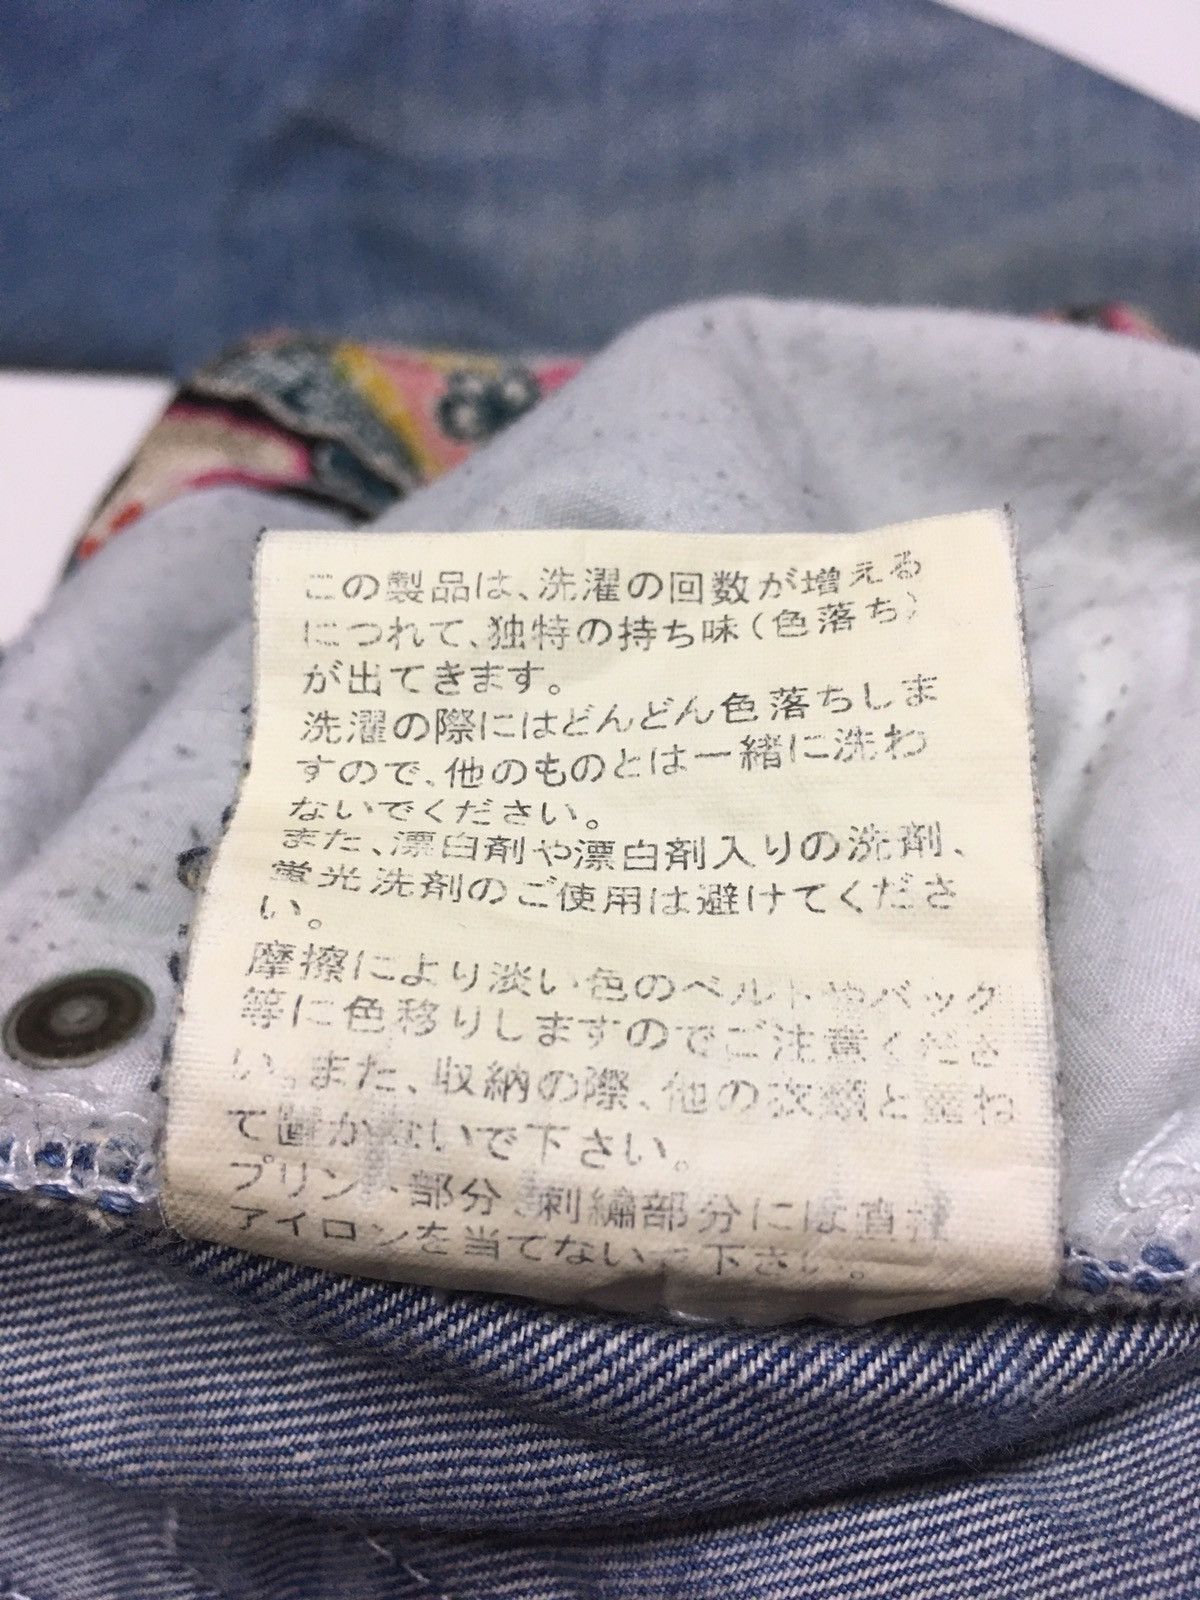 この製品は、洗濯の回数が増える
につれて、独特の持ち味（色落ち）
が出てきます。
洗濯の際にはどんどん色落ちしま
すので、他のものとは一緒に洗わ
ないでください。
また、漂白剤や漂白剤入りの洗剤、
蛍光洗剤のご使用は避けてくださ
い。
摩擦により淡い色のベルトやバッグ
等に色移りしますのでご注意くださ
い。また、収納の際、他の衣類と重ね
て置かないで下さい。
プリント部分、刺繍部分には直接
アイロンを当てないで下さい。